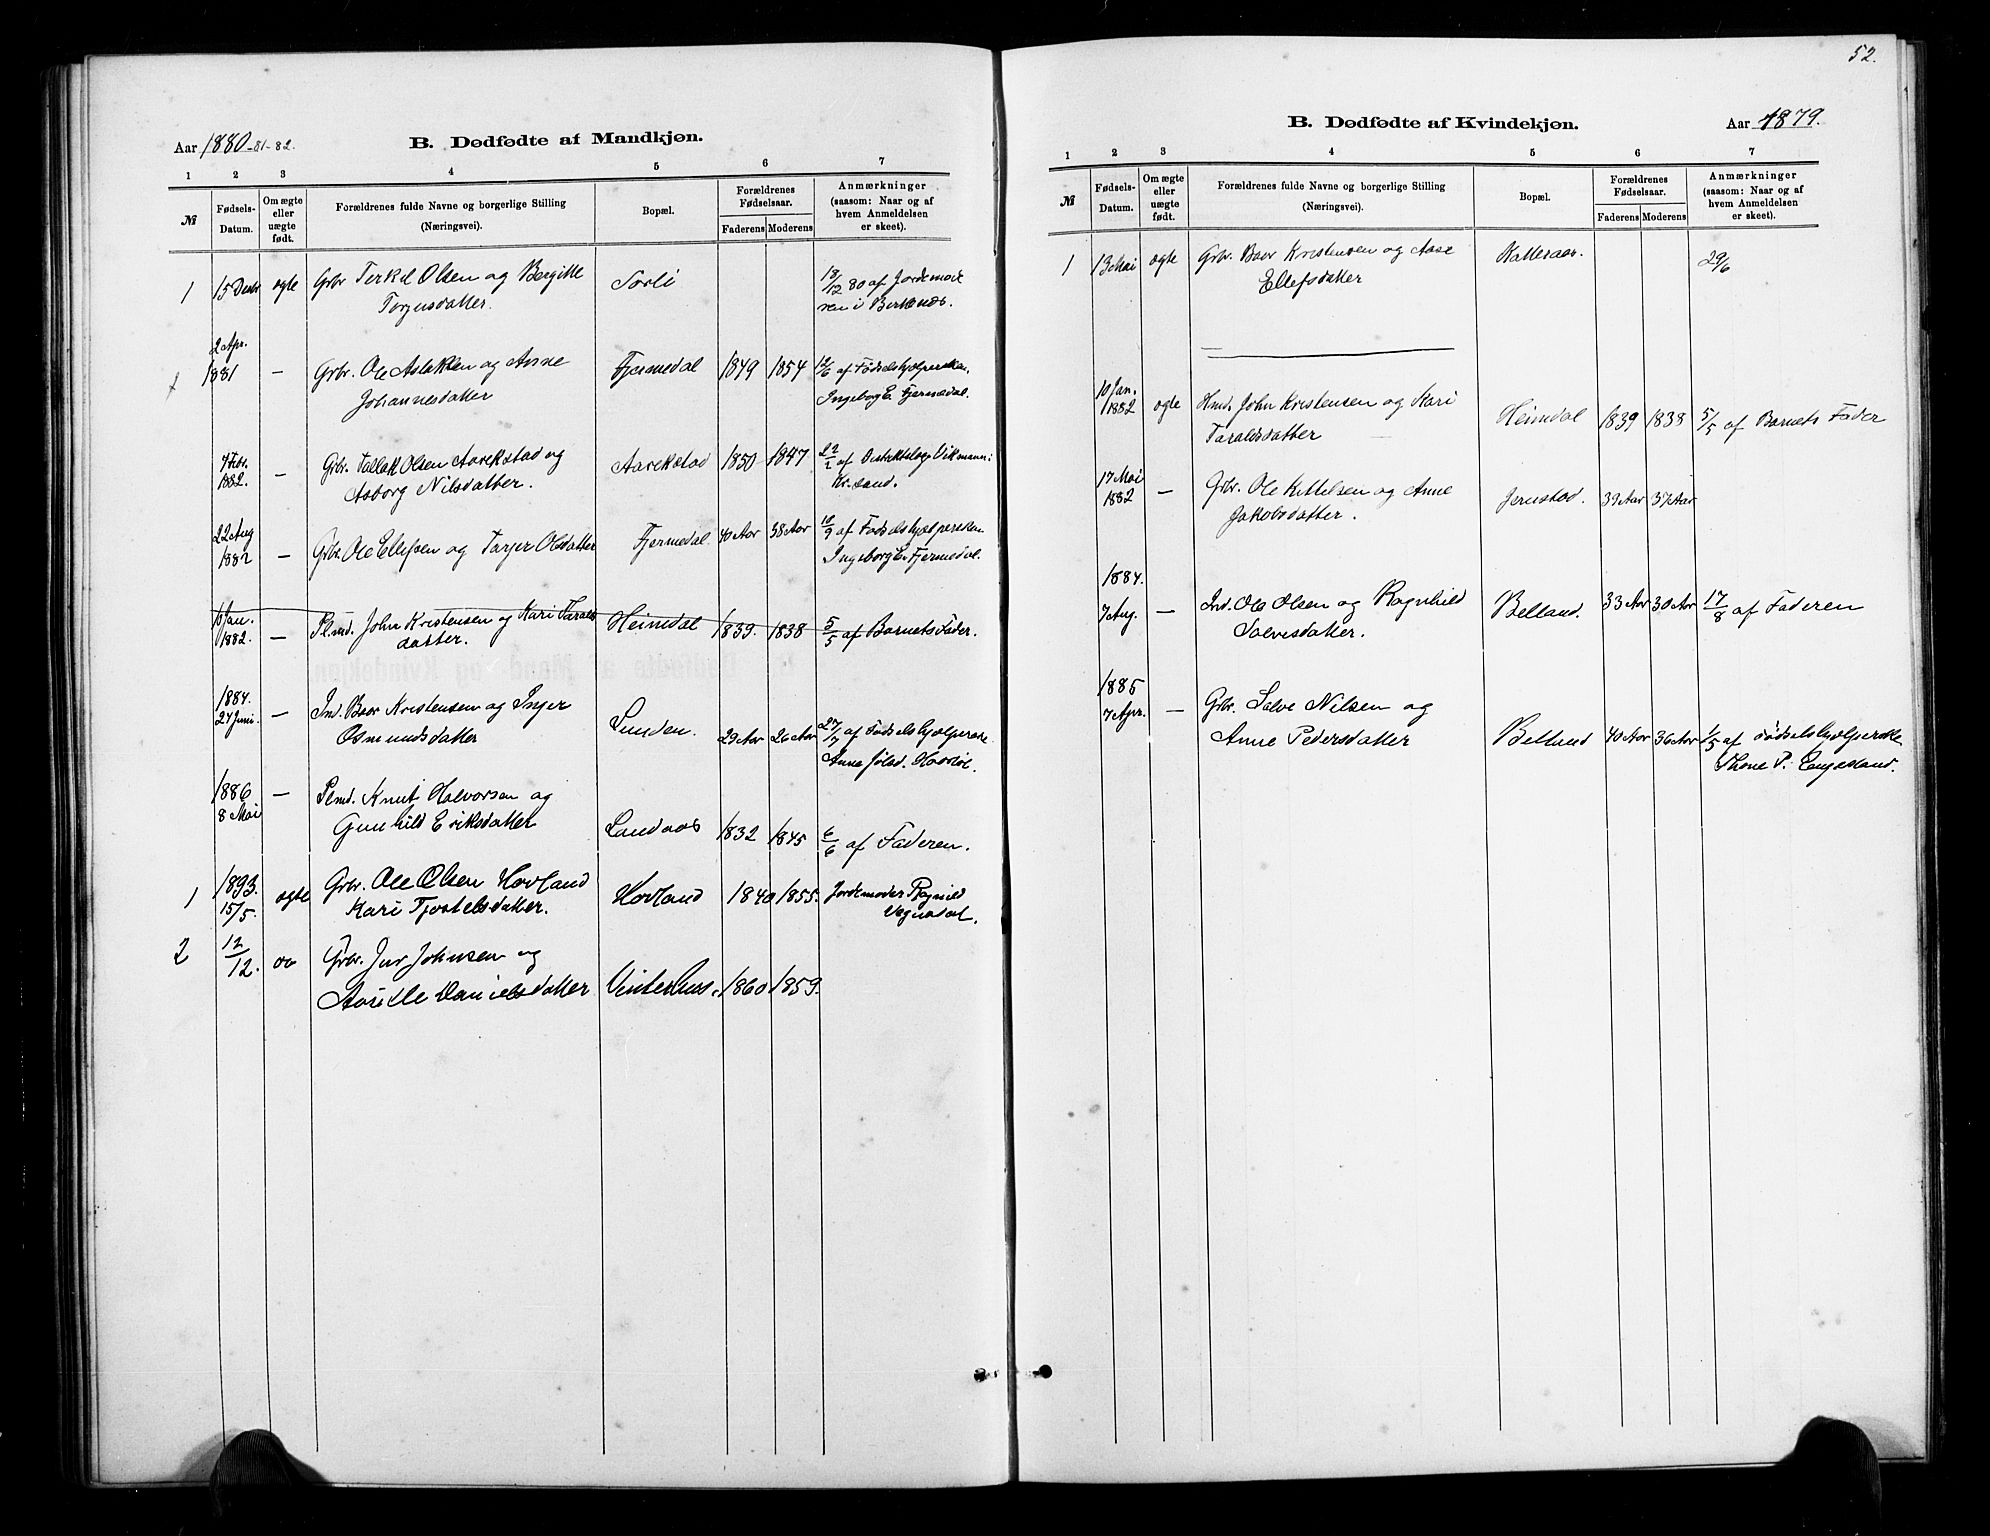 52.
Aar 1880-81-82.
B. Dødfødte af Mandkjøn.
1 2 3 4 5 6 7
№
Fødsels-Datum.
Om ægte eller uægte født.
Forældrenes fulde Navne og borgerlige Stilling (Næringsvei).
Bopæl.
Forældrenes Fødselsaar.
Faderens Moderens
Anmærkninger (saasom: Naar og af hvem Anmeldelsen er skeet).
1 15 Decbr ægte Grbr Terkil Olsen og Bergitte Sorli 18/12 80 af Jordemod
Torjusdatter. ren i Birkenæs.
2 Apr.
1881 — Grbr. Ole Aslaksen og Anne Fjermedal 1849 1854 12/6 af Fødselshjælpersken,
Johannesdatter Ingeborg E. Fjermedal.
4 Febr. 1882. — Grbr. Tallak Olsen Aarekstad og Aarekstad 1850 1847 22/2 af Distriktslæge Vikmann:
Asborg Nilsdatter. Kr.sand.
22 Aug 1882 — Grbr. Ole Ellefsen og Tarjer Olsdatter Fjermedal 40 Aar 38 Aar 10/9 af Fødselshjælpersken
Ingeborg E. Fjermedal.
10 Jan. 1882. — Plmd. John Kristensen og Kari Taralds Heimdal 1839. 1838 5/5 af Barnets Fader.
datter.
1884.
24 Juni. — Ind. Boer Kristensen og Inger Lunden. 29 Aar 26 Aar 27/7 af Fødselshjælperske
Osmundsdatter Anna
1886 — Plmd. Knut Halvorsen og
8 Mai Gunhild Eriksdatter Landaas 1832 1845 6/6 af Faderen.
1 1893. 15/5. ægte Grbr. Ole Olsen Hovland Hovland 1840 1855. Jordemoder Ragnild
Kari Tjostelsdatter. Vegusdal.
2 12/12. Grbr. Jur Johnsen og
Danielsdatter Vinterhus. 1860 1859.
B. Dødfødte af Kvindekjøn.
Aar 1879.
1 2 3 4 5 6 7
№
Fødsels-Datum.
Om ægte eller uægte født.
Forældrenes fulde Navne og borgerlige Stilling (Næringsvei).
Bopæl.
Forældrenes Fødselsaar.
Faderens Moderens
Anmærkninger (saasom: Naar og af hvem Anmeldelsen er skeet).
1 13 Mai ægte Grbr. Boer Kristensen og Aase Katteraas. 29/6
Ellefsdatter
10 Jan. 1882 ægte Hmd. John Kristensen og Kari Heimdal 1839 1838 5/5 af Barnets Fader
Taraldsdatter
17 Mai 1882 — Grbr. Ole Kittelsen og Anne Jernstad. 39 Aar 37 Aar
Jakobsdatter.
1884.
7 Aug. — Ind. Ole Olsen og Ragnhild Belland. 33 Aar 30 Aar 17/8 af Faderen
Salvesdatter.
1885
7 Apr. — Grbr. Salve Nilsen og
Anne Pedersdatter Belland 40 Aar 36 Aar 1/5 af Fødselshjælperske
Thone P. Engesland.